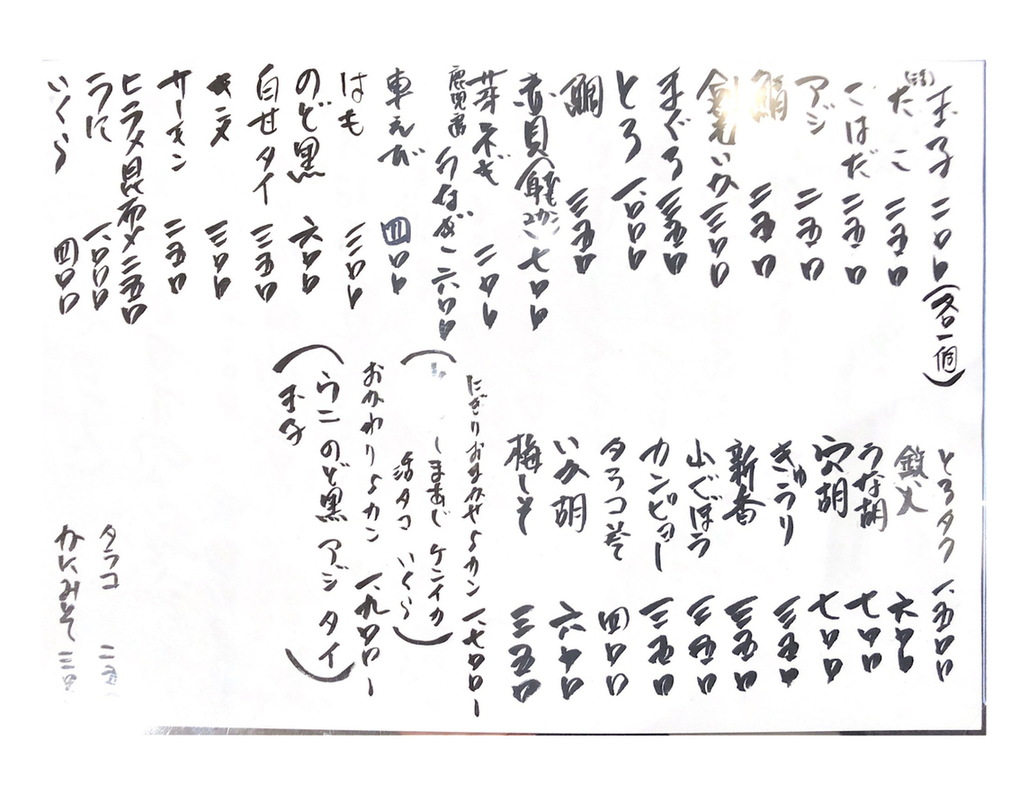 玉子 二〇〇 (各一個)
(活)たこ 二五〇
こはだ 二五〇
アジ 二五〇
二五〇
剣先いか 三〇〇
まぐろ 三五〇
とろ 一、〇〇〇
鯛 三五〇
赤貝 七〇〇
芽ネギ 二〇〇
鹿児島 うなぎ 六〇〇
車えび 四〇〇
はも 三〇〇
のど黒 六〇〇
白せタイ 三五〇
三〇〇
サーモン 二五〇
ヒラメ昆布〆 三五〇
うに 一、〇〇〇
いくら 四〇〇
とろタク 一、五〇〇
鉄火 六〇〇
うな胡 七〇〇
穴胡 七〇〇
きゅうり 三五〇
新香 三五〇
山ごぼう 三五〇
カンピョー 三五〇
タラコ 四〇〇
いか胡 六〇〇
梅しそ 三五〇
にぎりおまかせ5カン 一、七〇〇ー
(しまあじ ケンイカ
活タコ いくら)
おかわり5カン 一、九〇〇ー
(ウニ のど黒 アジ タイ
玉子)
タラコ 二五〇
かにみそ 三〇〇